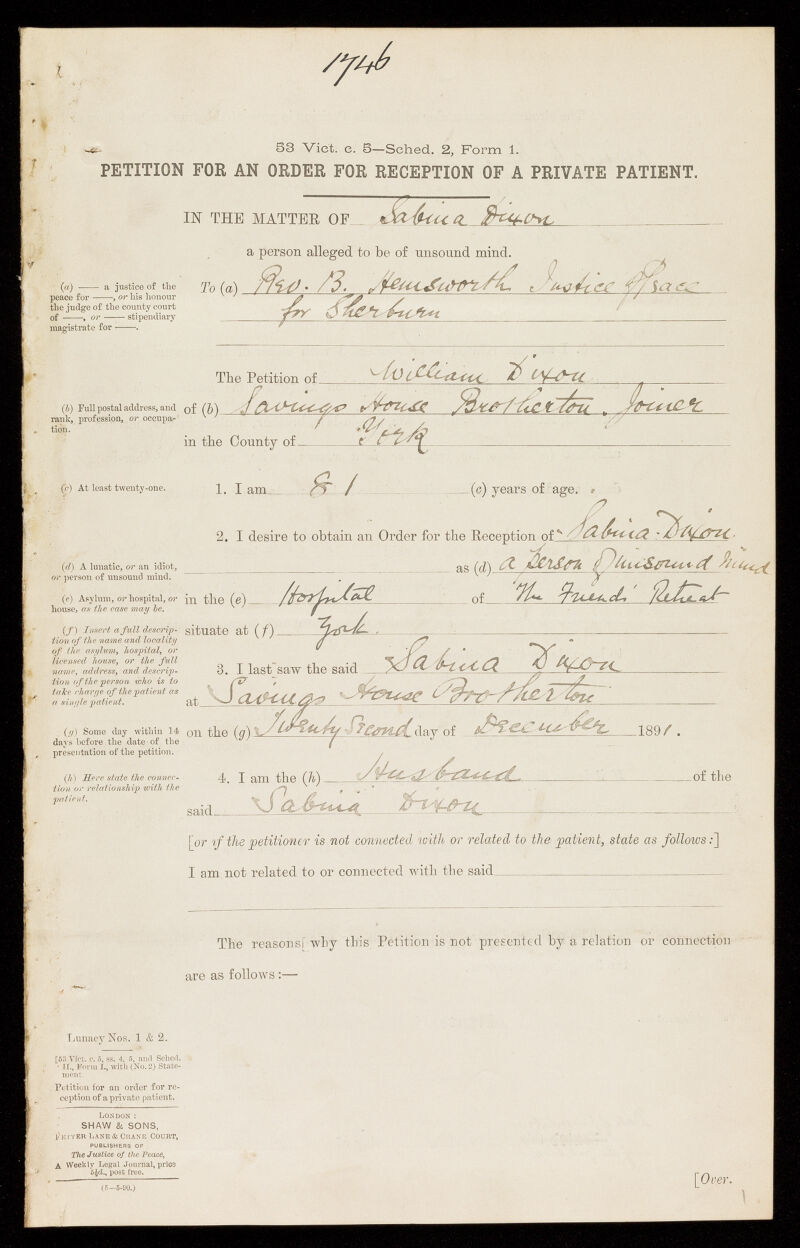 1746
53 Vict. c. 5—Sched. 2, Form 1.
PETITION FOR AN ORDER FOR RECEPTION OF A PRIVATE PATIENT.
IN THE MATTER OF Sabina Dixon
a person alleged to be of unsound mind.
(a) —— a justice of the
peace for ——, or his honour
the judge of the county court
of ——, or —— stipendiary
magistrate for ——.
To (a) Rev. B. Hemsworth Justice of Peace
for Sherburn
The Petition of William Dixon
(b) Full postal address, and
rank, profession, or occupa-
tion.
of (b) Savings House Brotherton. Joiner
in the County of York
(c) At least twenty-one.
1. I am 81 (c) years of age.
2. I desire to obtain an Order for the Reception of Sabina Dixon.
(d) A lunatic, or an idiot,
or person of unsound mind.
as (d) a person of unsound mind
(e) Asylum, or hospital, or
house, as the case may be.
in the (e) Hospital of The Friends' Retreat
(f) Insert a full descrip-
tion of the name and locality
of the asylum, hospital, or
licensed house, or the full
name, address, and descrip-
tion of the person who is to
take charge of the patient as
a single patient.
situate at (f) York.
3. I last saw the said Sabina Dixon
at Savings House Brotherton
(g) Some day within 14
days before the date of the
presentation of the petition.
on the (g) Twenty Second day of December 1891.
(h) Here state the connec-
tion or relationship with the
patient.
4. I am the (h) Husband of the
said Sabina Dixon
[or if the petitioner is not connected with or related to the patient, state as follows:]
I am not related to or connected with the said
The reasons why this Petition is not presented by a relation or connection
are as follows:—
Lunacy Nos. 1 & 2.
[53 Vict. c. 5, ss. 4, 5, and Sched.
II., Form 1., with (No. 2) State-
ment
Petition for an order for re-
ception of a private patient.
LONDON:
SHAW & SONS,
FETTER LANE & CRANE COURT,
PUBLISHERS OF
The Justice of the Peace,
A Weekly Legal Journal, price
5½d., post free.
(5—5-90.)
[Over.